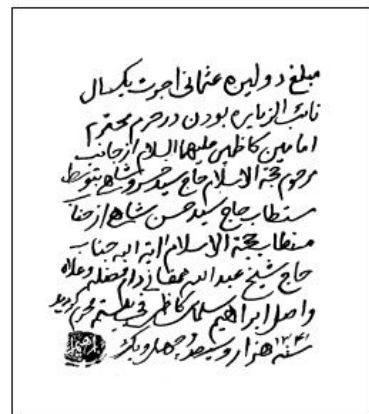 مبلغ دو لیره عثمانی اجرت یکسال
نائب الزیاره بودن در حرم محترم
امامین کاظمین علیهما السلام از جانب
مرحوم حجة الاسلام حاج سید خسروشاهی بتوسط
مستطاب حاج سید حسن شاهی از جناب
مستطاب حجة الاسلام آیة الله جناب
حاج شیخ عبد الله ممقانی دام فضله و علاه
واصل ابراهیم سلماسی کاظمی فی محرم
سنه ۱۳۴۱ هزار و سیصد و چهل و یک